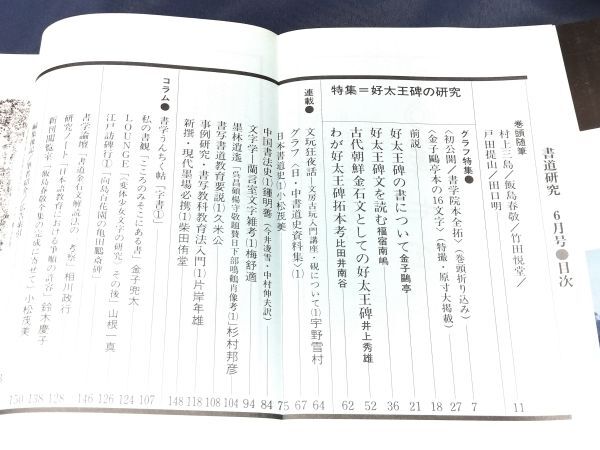 書道研究 6月号●目次
巻頭随筆
村上三島／飯島春敬／竹田悦堂／
戸田提山／田口明 11
グラフ特集●
〈初公開／書学院本全拓〉（巻頭折り込み） 7
〈金子鷗亭本の16文字〉（特撮・原寸大掲載） 27
特集＝好太王碑の研究
前説 18
好太王碑の書について 金子鷗亭 21
好太王碑文を読む 福宿南嶋 36
古代朝鮮金石文としての好太王碑 井上秀雄 52
わが好太王碑拓本考 比田井南谷 62
連載●
文玩狂夜話―文房古玩入門講座・硯について(1) 宇野雪村 64
グラフ〈日・中書道史資料集〉(1) 67
日本書道史(1) 小松茂美 75
中国書法史(1) 鍾明善（今井凌雪・中村伸夫訳） 84
文字学―蘭言室文字雑考(1) 梅舒適 94
墨林逍遥〔呉昌碩楊守敬題賛日下部鳴鶴肖像考(1)〕 杉村邦彦 104
書写書道教育要説(1) 久米公 108
事例研究・書写教科教育法入門(1) 片岸年雄 118
新撰・現代墨場必携(1) 柴田侑堂 148
コラム●
書学うんちく帖「字書①」 107
私の書観「こころのみそこにある書」 金子兜太 124
LOUNGE「〈変体少女文字の研究〉その後」 山根一真 126
江戸詩碑行(1)「向島百花園の亀田鵬斎碑」 100
書学論壇「書道金石文解説法の一考察」 相川政行 146
研究ノート「日本語教育における筆順の許容」 鈴木慶子 128
138
150
小松茂美